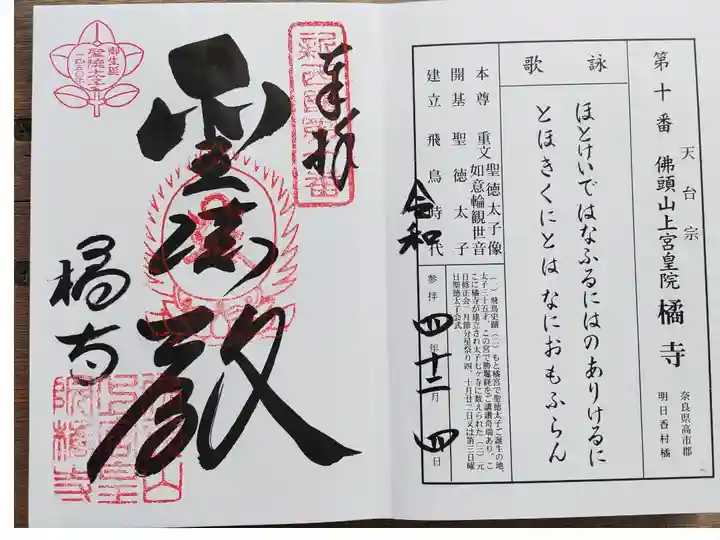 第十番
天台宗
佛頭山上宮皇院 橘寺
奈良県高市郡
明日香村橘
詠歌
ほとけいではなふるにはのありけるに
とほきくにとは なにおもふらん
本尊 重文 聖徳太子像
如意輪観世音
開基 聖徳太子
建立 飛鳥時代
(一)飛鳥史蹟(二)もと橘宮で聖徳太子ご誕生の地、
太子三十五才、この宮で勝鬘経をご講讃奇瑞あり、こ
こに橘寺が建立され太子七ヶ寺に数えられた(三)元
日修正会二月節分星祭り四、十月廿二日又は第三日曜
日聖徳太子会式
参拝 令和四年十二月四日
奉拝
橘寺
御生誕
聖徳太子